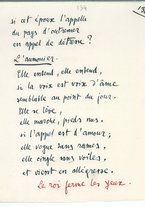 134
si cet époux l'appelle
du pays d'outremer
en appel de détresse ?
L'aumônier.
Elle entend, elle entend,
si la voix est voix d'âme
semblable au point du jour.
Elle se lève,
elle marche, pieds nus.
si l'appel est d'amour,
elle vogue sans rames,
elle cingle sans voiles,
et vient en allégresse.
Le roi ferme les yeux.